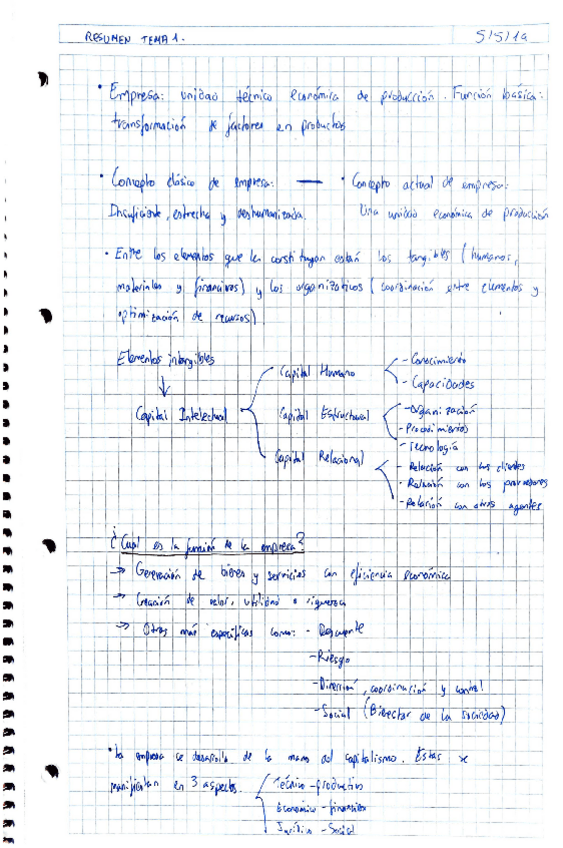 RESUMEN TEMA 1.
5/5/19
• Empresa: unidad técnico económica de producción. Función básica:
transformación de factores en productos
• Concepto clásico de empresa: — • Concepto actual de empresa:
Insuficiente, estrecha y deshumanizada. Una unidad económica de producción
• Entre los elementos que la constituyen están los tangibles (humanos,
materiales y financieros) y los organizativos (coordinación entre elementos y
optimización de recursos).
Elementos intangibles
↓
Capital Intelectual
Capital Humano
- Conocimiento
- Capacidades
Capital Estructural
- Organización
- Procedimientos
- Tecnología
Capital Relacional
- Relación con los clientes
- Relación con los proveedores
- Relación con otros agentes
¿Cuál es la función de la empresa?
→ Generación de bienes y servicios con eficiencia económica
→ Creación de valor, utilidad o riqueza
→ Otras más específicas como: - Descuento
- Riesgo
- Dirección, coordinación y control
- Social (Bienestar de la sociedad)
• La empresa se desarrolla de la mano del capitalismo. Estas se
manifiestan en 3 aspectos.
Técnico - productivo
Económico - financiero
Jurídico - Social